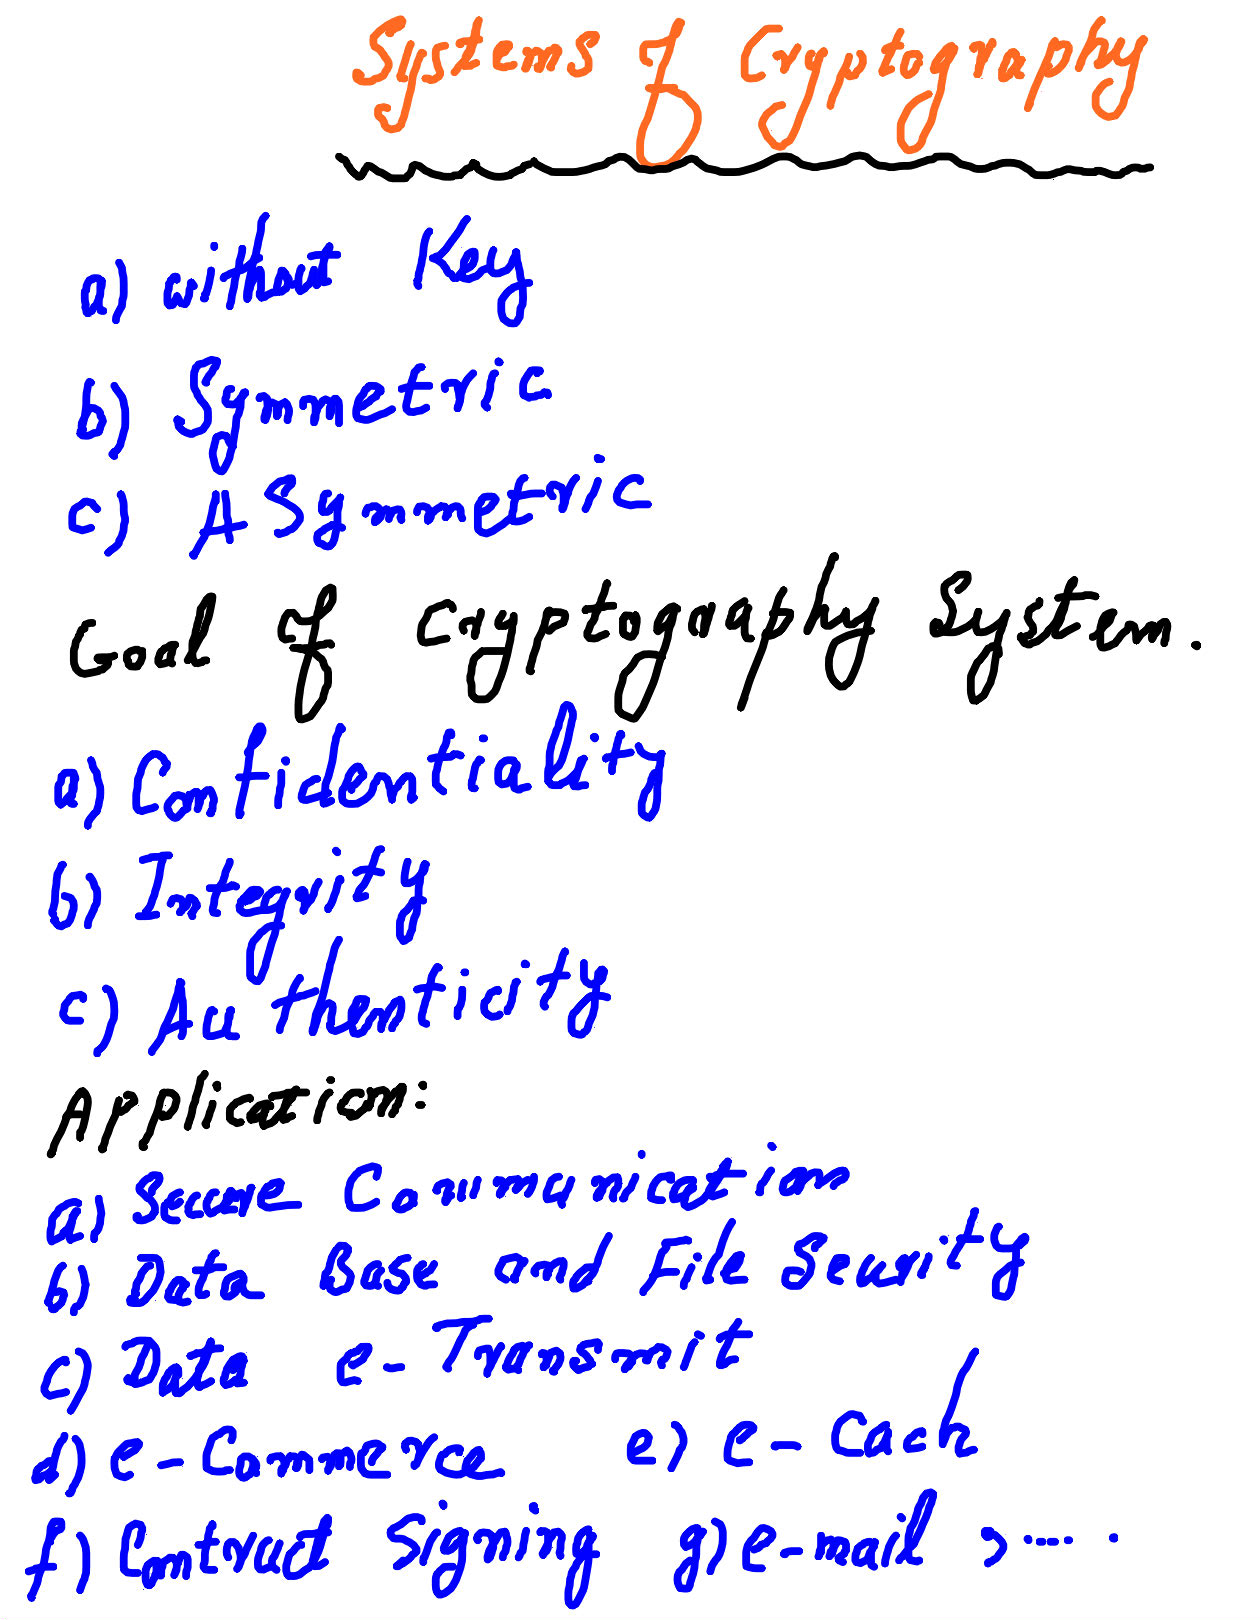 Systems of Cryptography
a) without Key
b) Symmetric
c) ASymmetric
Goal of Cryptography System.
a) Confidentiality
b) Integrity
c) Authenticity
Application:
a) Secure Communication
b) Data Base and File Security
c) Data e-Transmit
d) e-Commerce e) e-Cach
f) Contruct Signing g) e-mail , .... .